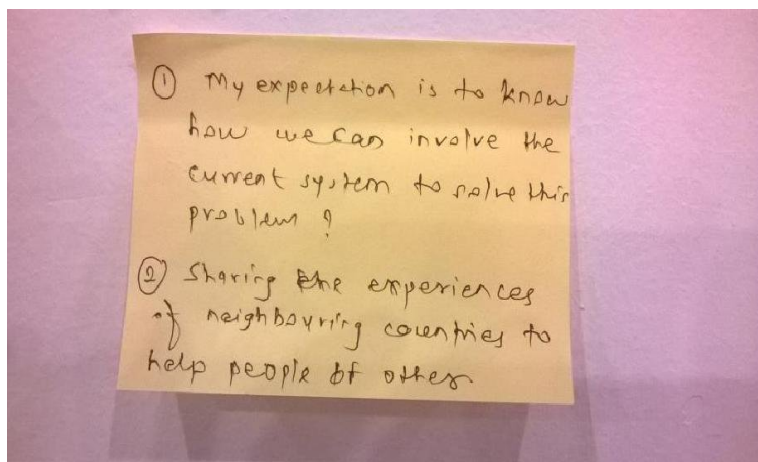 ① My expectation is to know
how we can involve the
current system to solve this
problem ?
② Sharing the experiences
of neighbouring countries to
help people of other